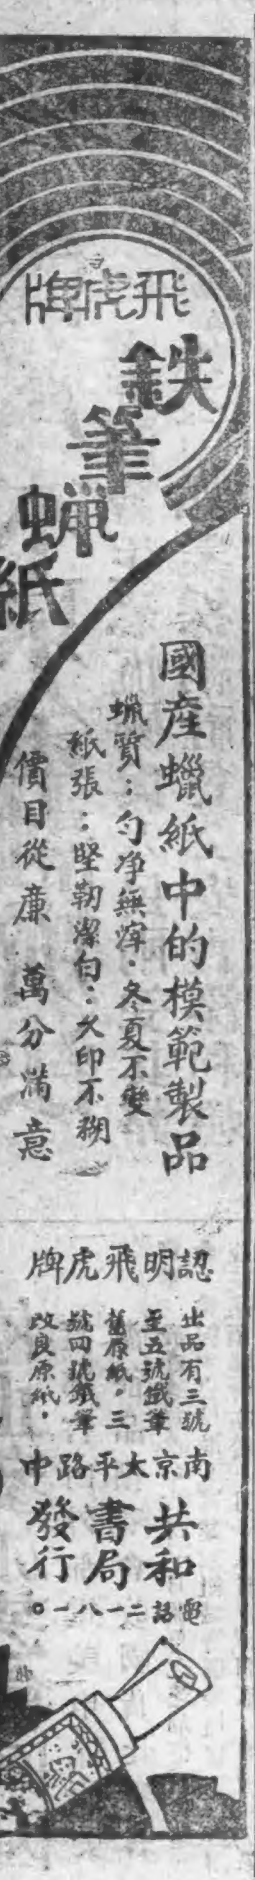 飛虎牌
鉄筆蝋紙
國產蠟紙中的模範製品
蝋質：勻净無滓．冬夏不變
紙張：堅韌潔白：久印不糊
價目從廉 萬分滿意
認明飛虎牌
出品有三號
至五號鐵筆
舊原紙。三
號四號鐵筆
改良原紙．
南京太平路中
共和書局發行
電話二一八一〇